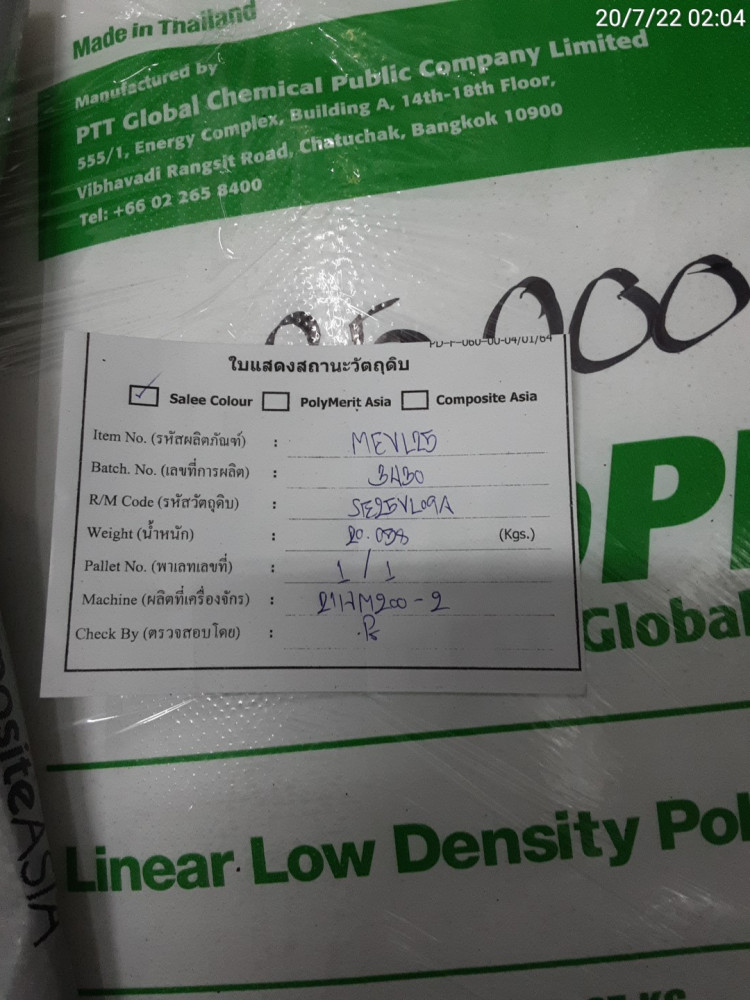 20/7/22 02:04
Made in Thailand
Manufactured by
PTT Global Chemical Public Company Limited
555/1, Energy Complex, Building A, 14th-18th Floor,
Vibhavadi Rangsit Road, Chatuchak, Bangkok 10900
Tel: +66 02 265 8400
PD-F-060-00-04/01/64
ใบแสดงสถานะวัตถุดิบ
Salee Colour PolyMerit Asia Composite Asia
Item No. (รหัสผลิตภัณฑ์) : MEVL25
Batch. No. (เลขที่การผลิต) : 3430
R/M Code (รหัสวัตถุดิบ) : SE25VL09A
Weight (น้ำหนัก) : 20.098 (Kgs.)
Pallet No. (พาเลทเลขที่) : 1 / 1
Machine (ผลิตที่เครื่องจักร) : 2114M200-2
Check By (ตรวจสอบโดย) :
Global
Linear Low Density Pol